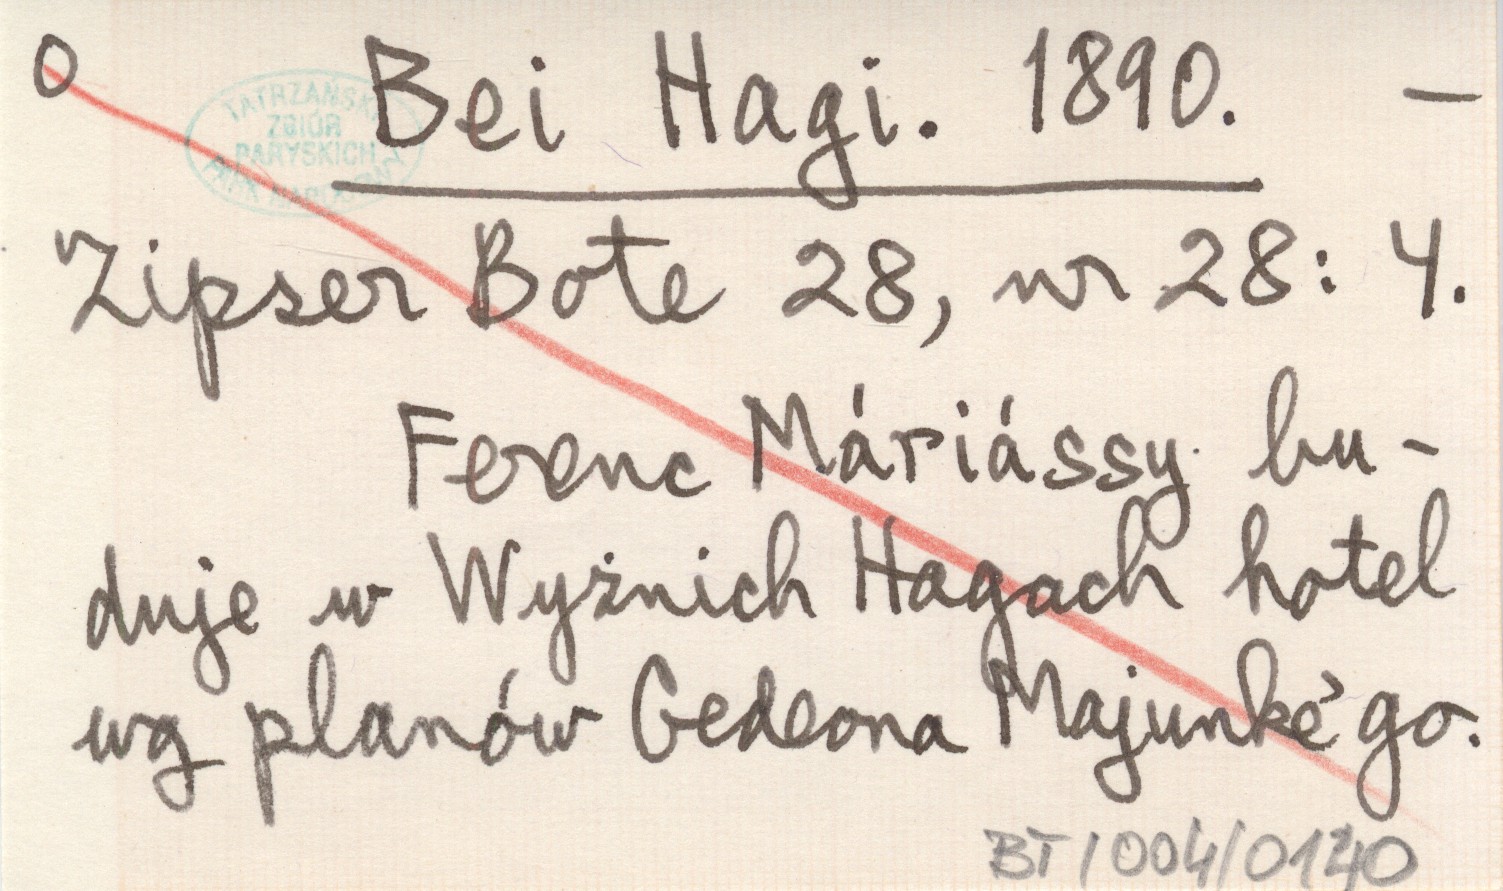 O Bei Hagi. 1890. —
TATRZAŃSKI
ZBIÓR
PARYSKICH
PARK NARODOWY
Zipser Bote 28, nr 28: 4.
Ferenc Máriássy bu-
duje w Wyżnich Hagach hotel
wg planów Gedeona Majunké'go.
BT/004/0140